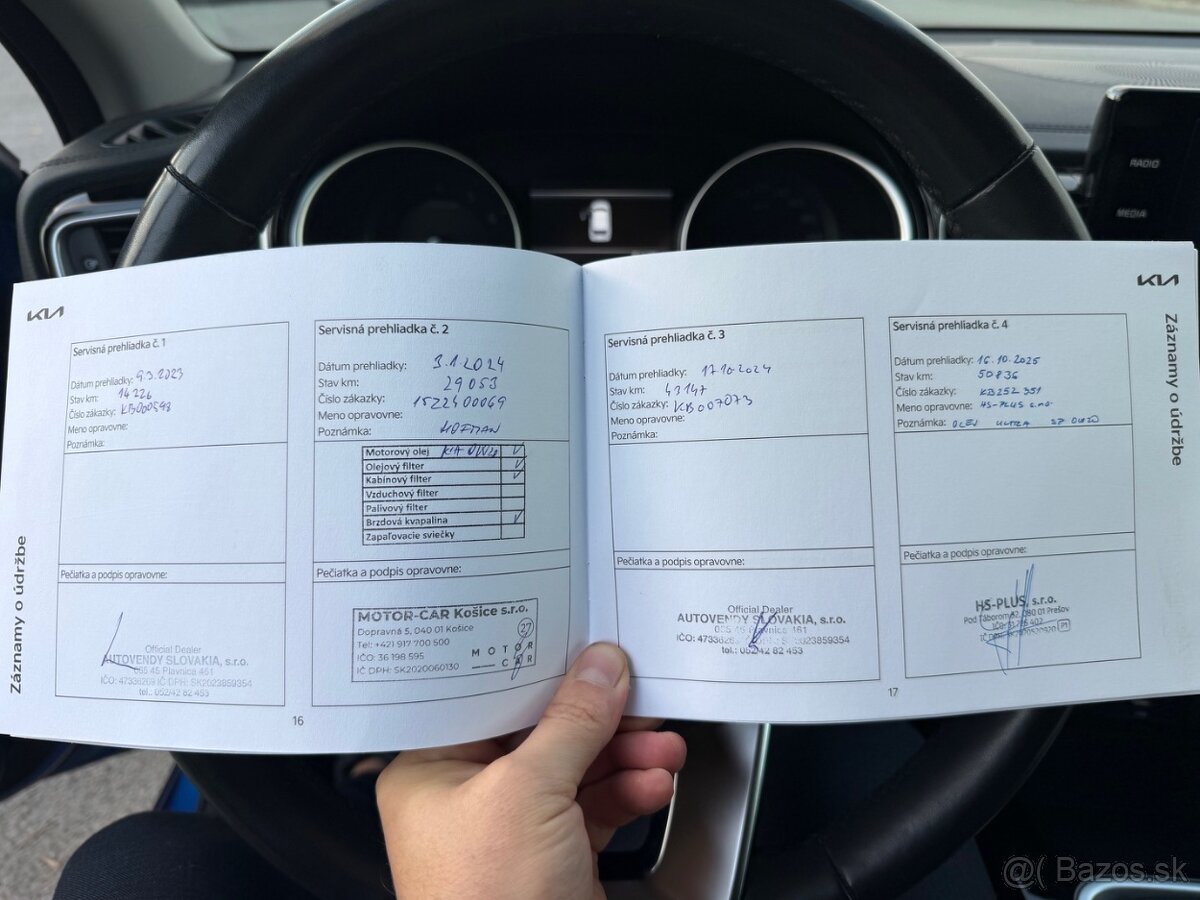 RADIO
MEDIA
KIA
Servisná prehliadka č. 1
Dátum prehliadky: 9.3.2023
Stav km: 14 226
Číslo zákazky: KB000548
Meno opravovne:
Poznámka:
Pečiatka a podpis opravovne:
Official Dealer
AUTOVENDY SLOVAKIA, s.r.o.
065 45 Plavnica 461
IČO: 47336269 IČ DPH: SK2023859354
tel.: 052/42 82 453
Záznamy o údržbe
16
Servisná prehliadka č. 2
Dátum prehliadky: 3.1.2024
Stav km: 29 053
Číslo zákazky: 1522400069
Meno opravovne:
Poznámka: HOFMAN
Motorový olej KIA 0W20
Olejový filter
Kabínový filter
Vzduchový filter
Palivový filter
Brzdová kvapalina
Zapaľovacie sviečky
Pečiatka a podpis opravovne:
MOTOR-CAR Košice s.r.o.
Dopravná 5, 040 01 Košice
Tel: +421 917 700 500
IČO: 36 198 595
IČ DPH: SK2020060130
27
MOTOR
CAR
KIA
Servisná prehliadka č. 3
Dátum prehliadky: 17.10.2024
Stav km: 43147
Číslo zákazky: KB007073
Meno opravovne:
Poznámka:
Pečiatka a podpis opravovne:
Official Dealer
AUTOVENDY SLOVAKIA, s.r.o.
065 45 Plavnica 461
tel.: 052/42 82 453
17
Servisná prehliadka č. 4
Dátum prehliadky: 16.10.2025
Stav km: 50836
Číslo zákazky: KB252 351
Meno opravovne: HS-PLUS s.r.o.
Poznámka: OLEJ ULTRA
Pečiatka a podpis opravovne:
HS-PLUS, s.r.o.
Pod Táborom 080 01 Prešov
P1
Záznamy o údržbe
@( Bazos.sk